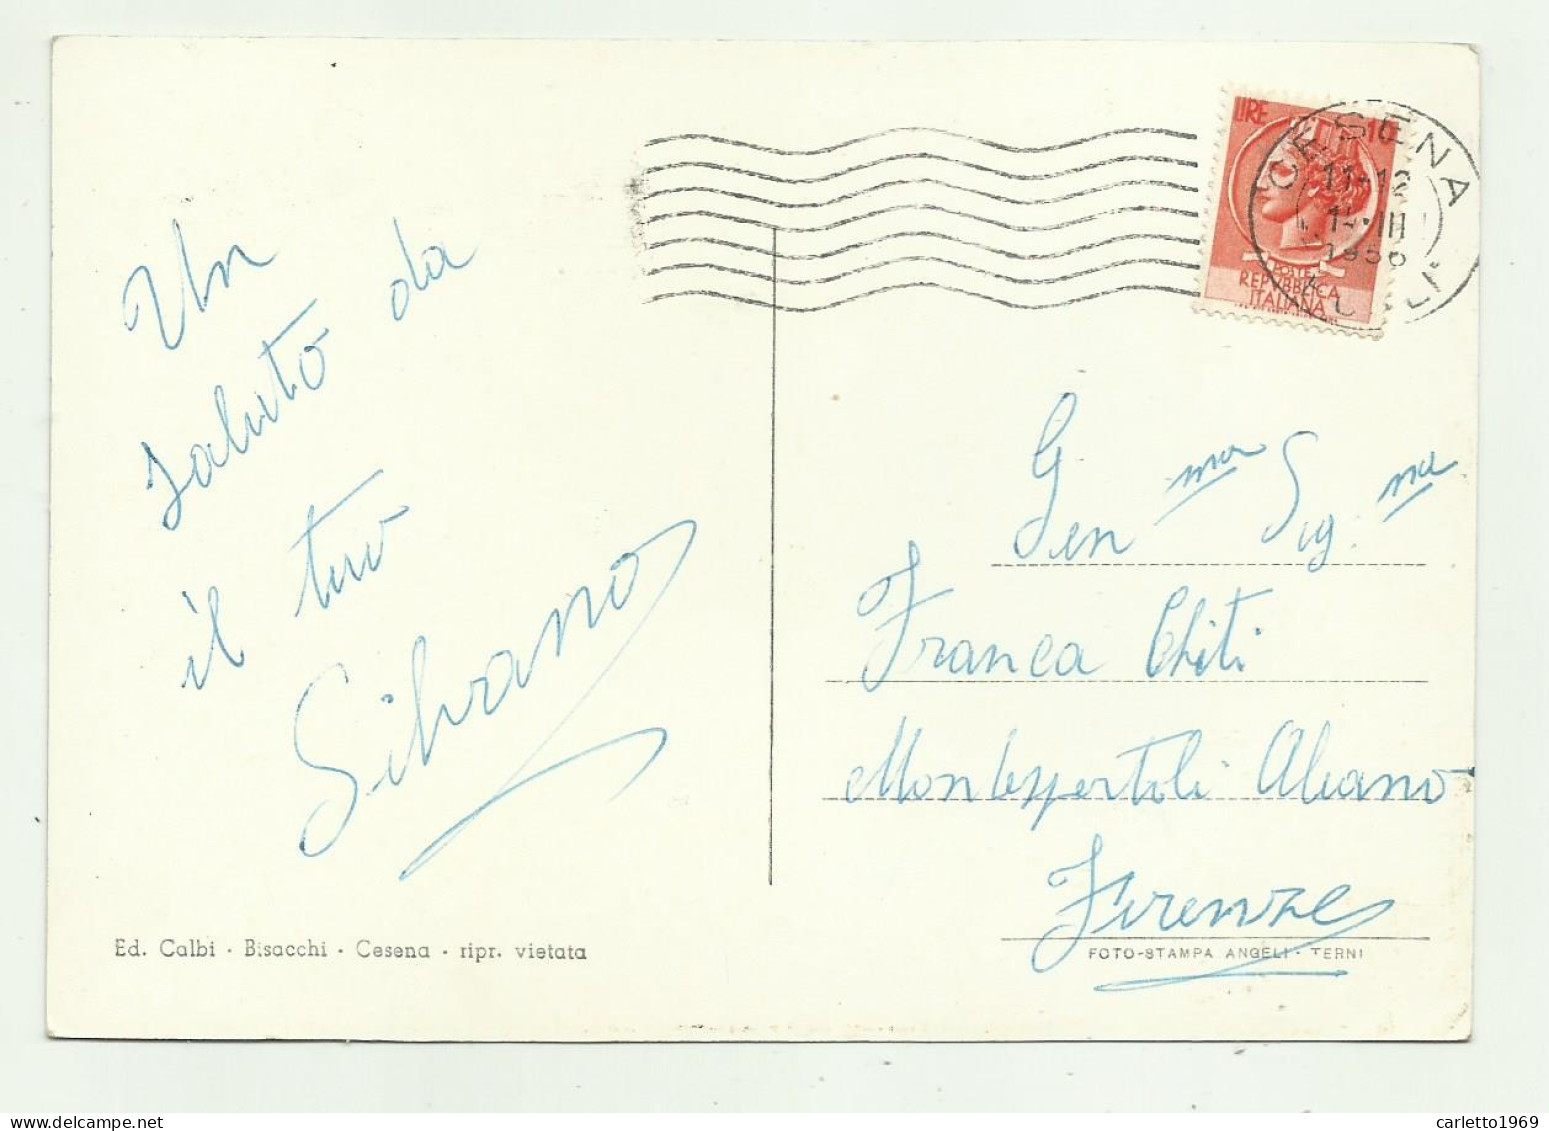 Un
saluto da
il tuo
Silvano
Ed. Calbi - Bisacchi - Cesena - ripr. vietata
LIRE 10
POSTE
REPVBBLICA
ITALIANA
CESENA
11-12
III
1956
Gen ma Sig. na
Franca Chiti
Montespertoli
Firenze
FOTO-STAMPA ANGELI - TERNI
carletto1969